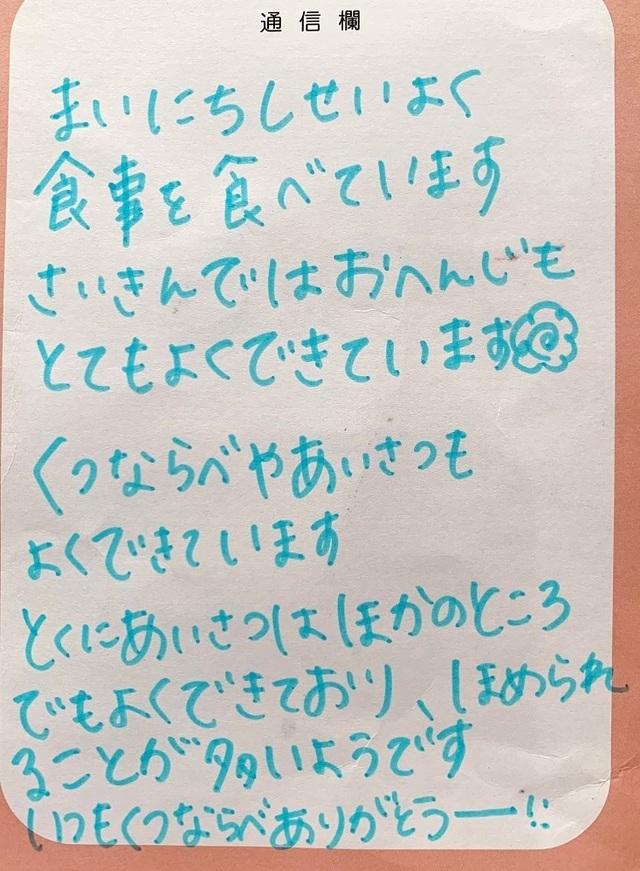 通信欄
まいにちしせいよく
食事を食べています
さいきんではおへんじも
とてもよくできています
くつならべやあいさつも
よくできています
とくにあいさつはほかのところ
でもよくできており、ほめられ
ることが多いようです
いつもくつならべありがとうー!!